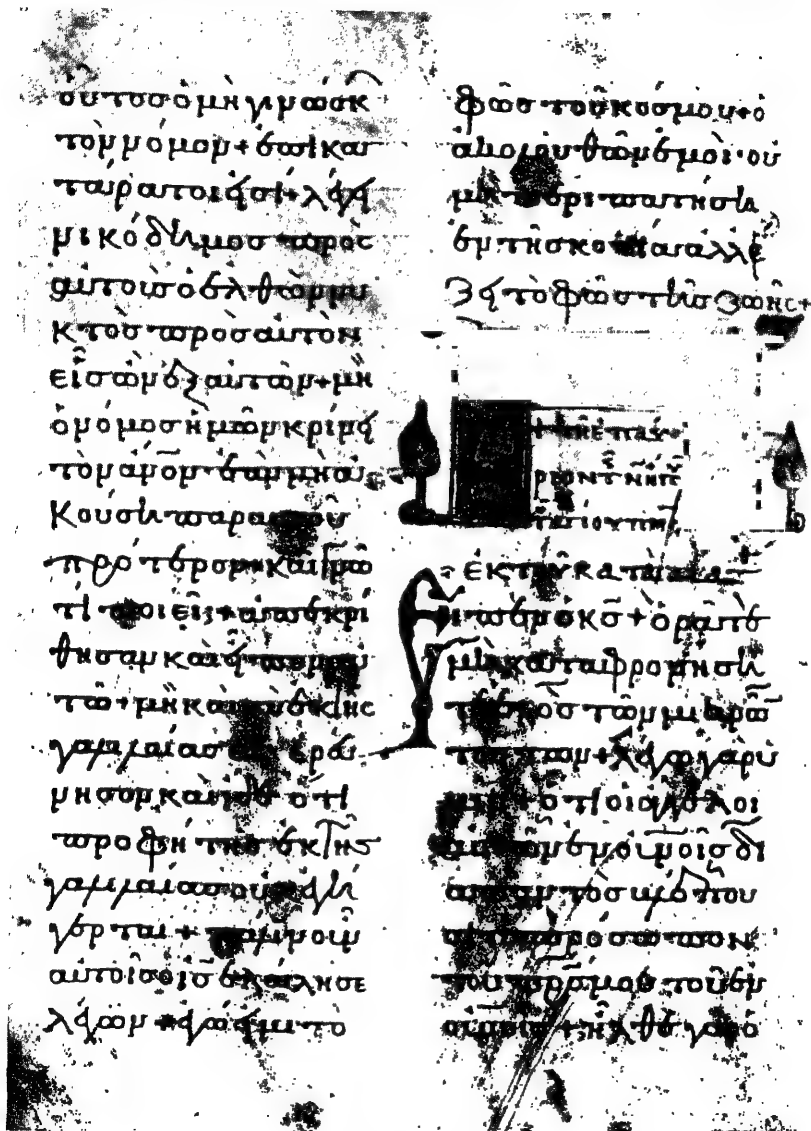 οὗτοσ ὁ μὴ γινώσκ
τὸν νόμον + ἐπικα
τάρατοι εἰσί + λέγει
νικόδημοσ πρὸσ
αὐτοὺσ ὁ ἐλθὼν νυ
κτὸσ πρὸσ αὐτὸν
εἷσ ὢν ἐξ αὐτῶν + μὴ
ὁ νόμοσ ἡμῶν κρίνει
τὸν ἄνον ἐὰν μὴ ἀ
κούσῃ παρ αὐτοῦ
πρότερον καὶ γνῶ
τί ποιεῖ + ἀπεκρί
θησαν καὶ εἶπον αὐ
τῶ + μὴ καὶ σὺ ἐκ τῆς
γαλιλαίασ εἶ ἐραύ
νησον καὶ ἴδε ὅτι
προφήτησ ἐκ τῆς
γαλιλαίασ οὐκ ἐγή
γερται + πάλιν οὖν
αὐτοῖσ ὁ ισ ἐλάλησε
λέγων + ἐγώ εἰμι τὸ
φῶσ τοῦ κόσμου + ὁ
ἀκολουθῶν ἐμοὶ · οὐ
μὴ περιπατήσῃ
ἐν τῆ σκοτία ἀλλ ἕ
ξει τὸ φῶσ τῆσ ζωῆς +
ἐκ τοῦ κατὰ
Εἶπεν ὁ κσ + ὁρᾶτε
μὴ καταφρονήσῃ
τε ἑνὸσ τῶν μικρῶ
τούτων + λέγω γὰρ ὑ
μῖν + ὅτι οἱ ἄγγελοι
αὐτῶν ἐν οὐνοῖσ δι
απαντὸσ βλέπου
σι τὸ πρόσωπον
τοῦ πρσ μου τοῦ ἐν
οὐνοῖσ + ἦλθε γὰρ ὁ